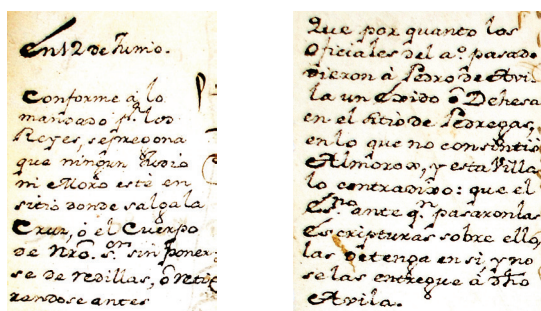 En 12 de Junio.
Conforme â lo
mandado pr. los
Reyes, se pregona
que ningun Judio
ni Moro estè en
sitio donde salga la
Cruz, ô el Cuerpo
de Nro. Sor. sin poner-
se de rodillas, ô retir
randose antes
Que por quanto los
Oficiales del ao. pasado
dieron à Pedro de Avi
la un Exido ô Dehesa
en el sitio de Pedregas,
en lo que no consintiò
Almorox, y esta Villa
lo contradixo: que el
Esno. ante qn. pasaron las
Escripturas sobre ello,
las detenga en si, y no
se las entregue â dho
Avila.